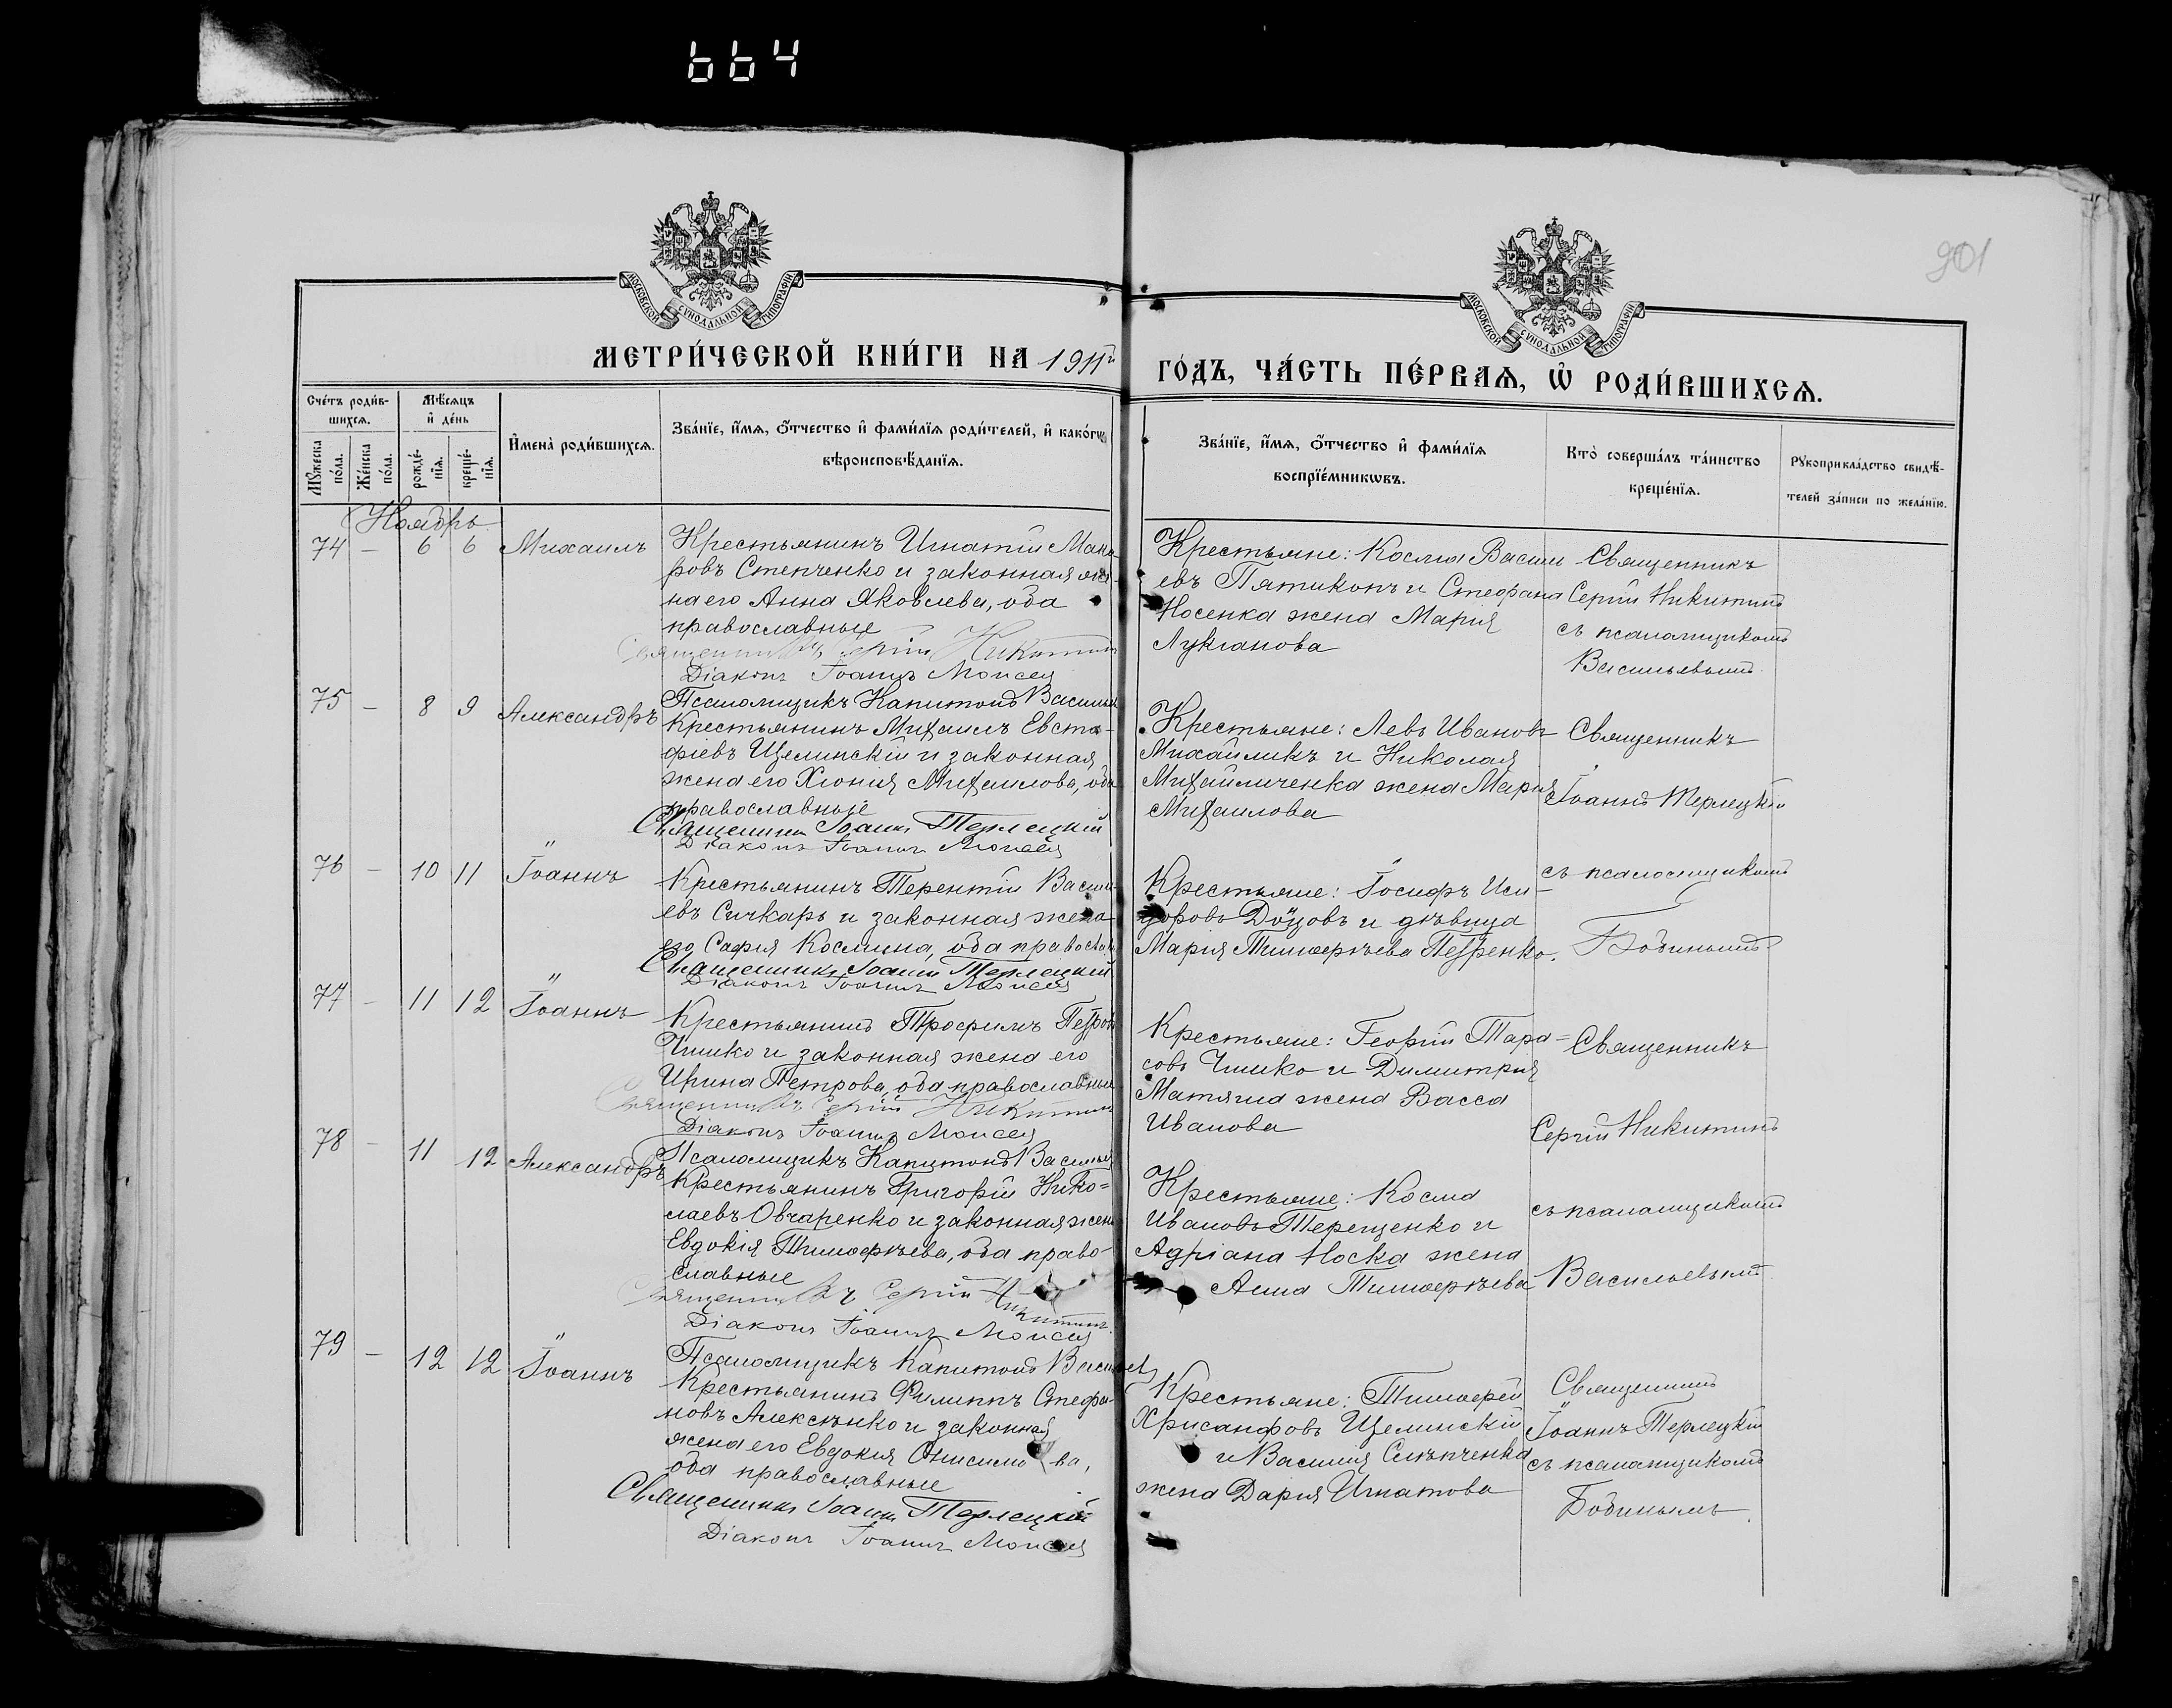 664
901
МОСКОВСКОЙ СѴНОДАЛЬНОЙ ТИПОГРАФІИ
МОСКОВСКОЙ СѴНОДАЛЬНОЙ ТИПОГРАФІИ
МЕТРИ́ЧЕСКОЙ КНИ́ГИ НА 1911й
ГО́ДЪ, ЧА́СТЬ ПЕ́РВАѦ, Ѡ҆ РОДИ́ВШИХСѦ.
Сче́тъ роди́в-
шихсѧ.
Мꙋ́жеска
по́ла.
Же́нска
по́ла.
Мѣ́сѧцъ
и҆ де́нь
рожде́-
нїѧ.
креще́-
нїѧ.
И҆мена̀ роди́вшихсѧ.
Зва́нїе, и҆́мѧ, ѻ҆́тчество и҆ фами́лїѧ роди́телей, и҆ како́гѡ
вѣроисповѣ́данїѧ.
Зва́нїе, и҆́мѧ, ѻ҆́тчество и҆ фами́лїѧ
воспрїе́мникѡвъ.
Кто̀ соверша́лъ та́инство
креще́нїѧ.
Рꙋкоприкла́дство свидѣ́-
телей за́писи по жела́нїю.
Ноябрь
74 — 6 6 Михаилъ
Крестьянинъ Игнатій Мака
ровъ Степченко и законная же-
на его Анна Яковлева, оба
православные
Священникъ Сергій Никитинъ
Діаконъ Іоаннъ Моисей
Псаломщикъ Капитонъ Васильев
Крестьяне: Косма Василь
евъ Пятикопъ и Стефана
Носенка жена Марія
Лукіанова
Священникъ
Сергій Никитинъ
съ псаломщикомъ
Васильевымъ
75 — 8 9 Александръ
Крестьянинъ Михаилъ Евста-
фіевъ Щелинскій и законная
жена его Хіонія Михаилова, оба
православные
Священникъ Іоаннъ Терлецкій
Діаконъ Іоаннъ Моисей
Крестьяне: Левъ Ивановъ
Михайликъ и Николая
Михайличенка жена Марія
Михаилова
Священникъ
Іоаннъ Терлецкій
76 — 10 11 Іоаннъ
Крестьянинъ Терентій Василь
евъ Сичкарь и законная жена
его Софія Космина, оба православн
Священникъ Іоаннъ Терлецкій
Діаконъ Іоаннъ Моисей
Крестьяне: Іосифъ Иси-
доровъ и дѣвица
Марія Тимофѣева Петренко.
съ псаломщикомъ
Бобинымъ
77 — 11 12 Іоаннъ
Крестьянинъ Трофимъ Петров
Чишко и законная жена его
Ирина Петрова, оба православные
Священникъ Сергій Никитинъ
Діаконъ Іоаннъ Моисей
Псаломщикъ Капитонъ Васильев
Крестьяне: Георгій Тара=
совъ Чишко и Димитрія
Матяша жена Васса
Иванова
Священникъ
Сергій Никитинъ
78 — 11 12 Александръ
Крестьянинъ Григорій Нико=
лаевъ Овчаренко и законная жена
Евдокія Тимофѣева, оба право-
славные
Священникъ Сергій Никитинъ
Діаконъ Іоаннъ Моисей
Псаломщикъ Капитонъ Васильев
Крестьяне: Косма
Ивановъ Терещенко и
Адріана Носка жена
Анна Тимофѣева
съ псаломщикомъ
Васильевымъ
79 — 12 12 Іоаннъ
Крестьянинъ Филиппъ Стефа-
новъ Алексѣнко и законная
жена его Евдокія Онисимова,
оба православные
Священникъ Іоаннъ Терлецкій
Діаконъ Іоаннъ Моисей
Крестьяне: Тимофей
Хрисанфовъ Щелинскій
и Василія Слѣпченка
жена Дарія Игнатова
Священникъ
Іоаннъ Терлецкій
съ псаломщикомъ
Бобинымъ